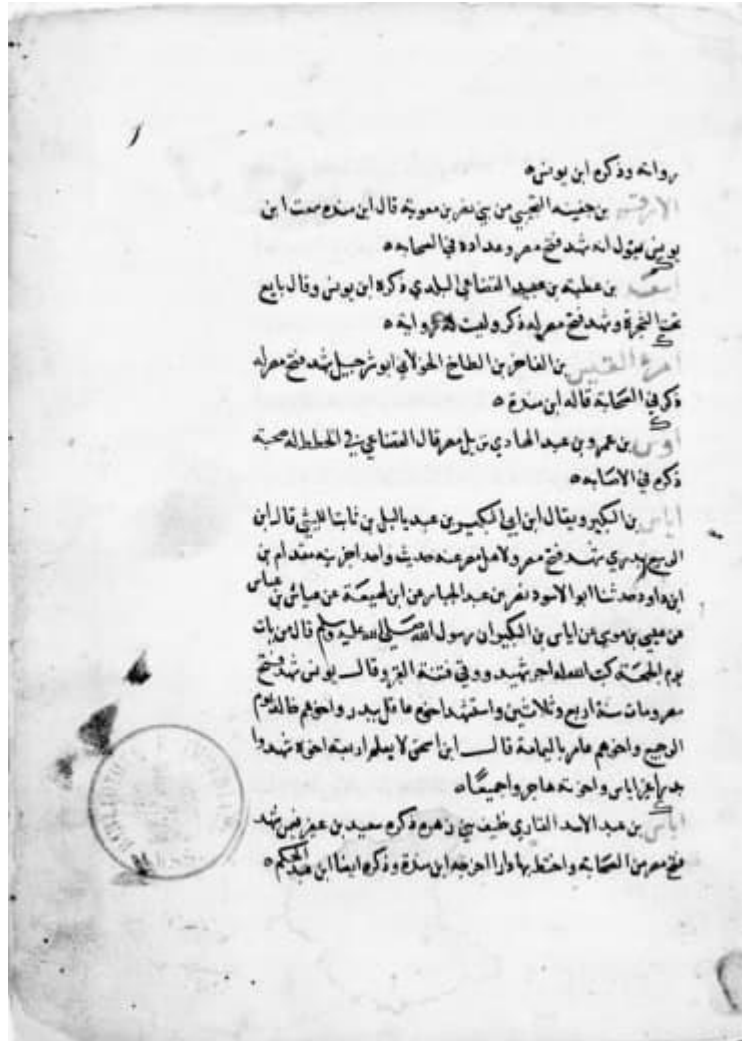 رواية وذكره ابن يونس ه
الارقم بن جفينه التجيبي من بني نصر بن معوية قال ابن منده سمعت ابن
يونس يقول له شهد فتح مصر وعداده في الصحابة ه
اسعد بن عطية بن عبيد القضاعي البلوي ذكره ابن يونس وقال بايع
تحت الشجرة وشهد فتح مصر له ذكر وليت له رواية ه
امرؤ القيس بن الفاخر بن الطماح الخولاني ابو شرحبيل شهد فتح مصر له
ذكر في الصحابة قاله ابن مندة ه
اوس بن عمرو بن عبد القاري نزيل مصر قال القضاعي في الخطط له صحبة
ذكره في الاصابه ه
اياس بن البكير ويقال ابن ابي البكير بن عبد ياليل بن ناشب الليثي قال ابن
الربيع بدري شهد فتح مصر ولاهل مصر عنه حديث واحد اخرجه مقدام بن
ابن داود حدثنا ابو الاسود نصر بن عبد الجبار عن ابن لهيعة عن عياش بن عباس
عن عيسى بن موسى عن اياس بن البكير ان رسول الله صلى الله عليه وسلم قال من مات
يوم الجمعة كتب الله له اجر شهيد ووقي فتنة القبر وقال يونس شهد فتح
مصر ومات سنة اربع وثلاثين واستشهد اخوه عاقل ببدر واخوهم خالد يوم
الرجيع واخوهم عامر باليمامة قال ابن اسحق لا يعلم اربعة اخوة شهدوا
بدرا غير اياس واخوته هاجروا جميعا ه
اياس بن عبد الاسد القاري حليف بني زهره ذكره سعيد بن عفير فيمن شهد
فتح مصر من الصحابة واختط بها دارا اخرجه ابن مندة وذكره ايضا ابن عبد الحكم ه